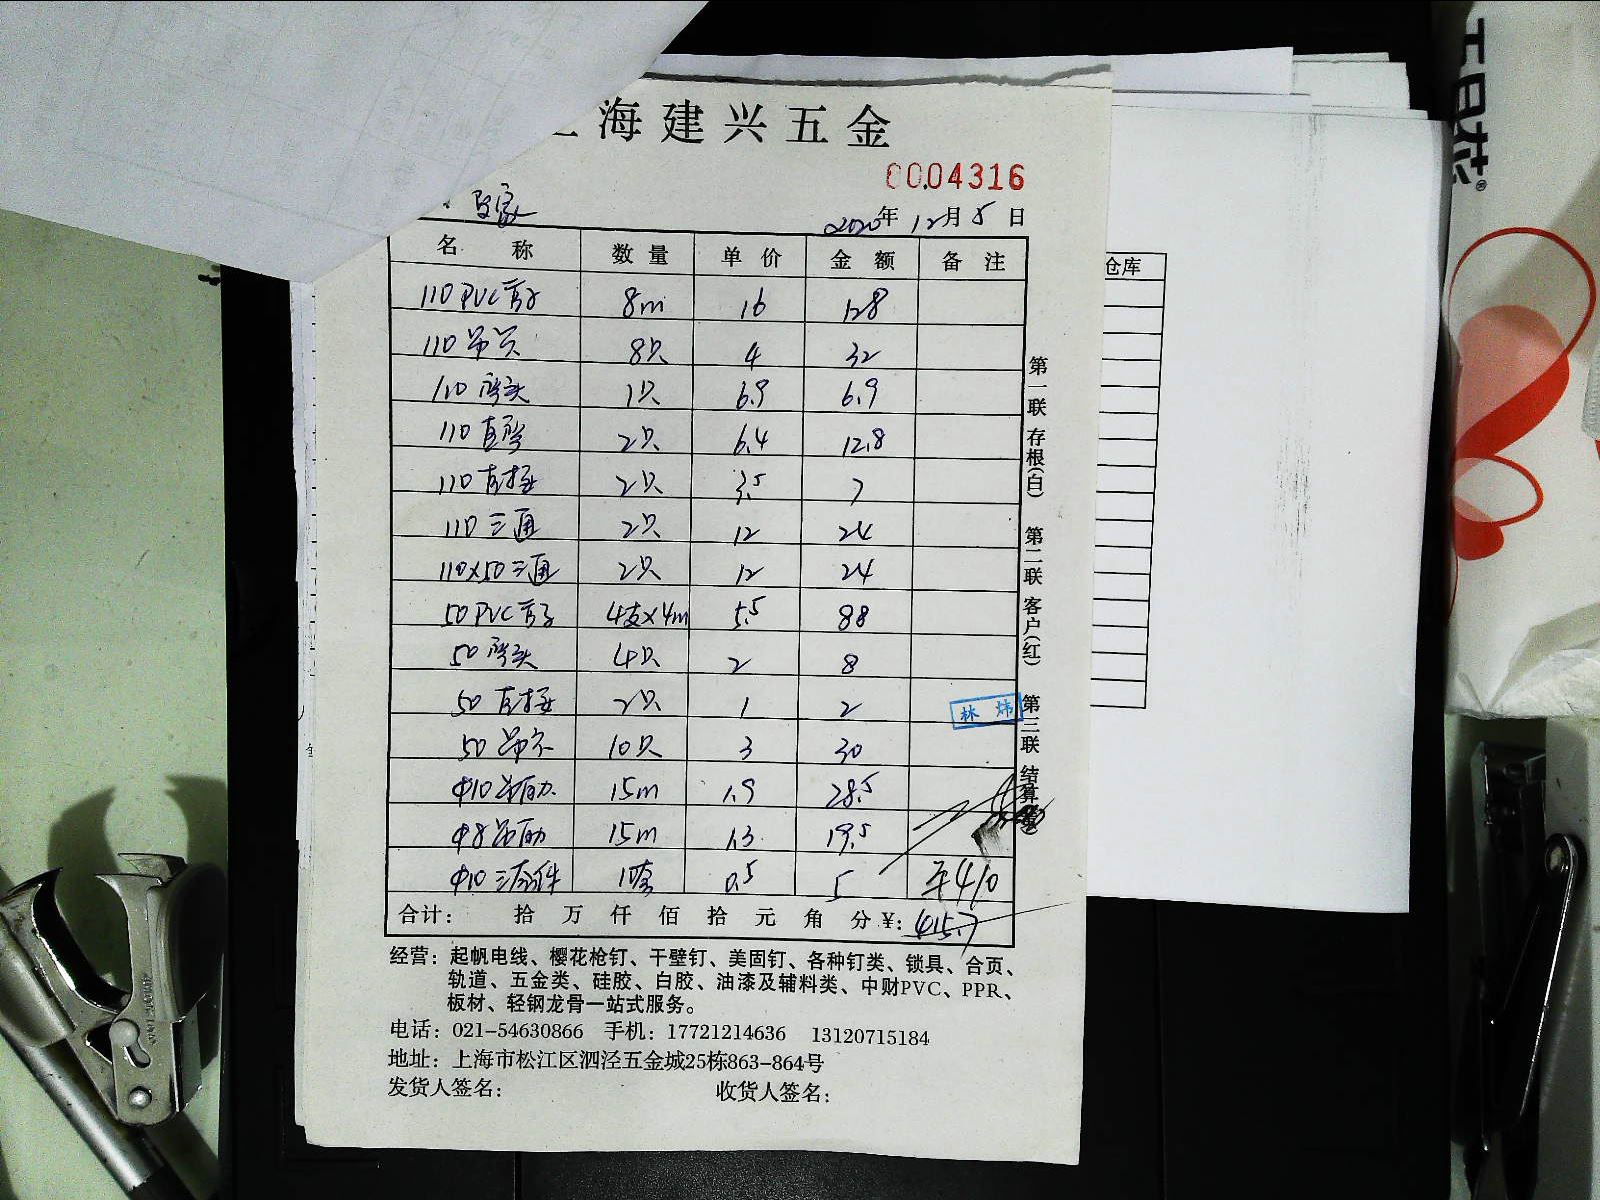 上海建兴五金
0004316
2020年 12月 5日
名 称 数 量 单 价 金 额 备 注
110 PVC管子 8m 16 128
110 吊卡 8只 4 32
110 弯头 1只 6.9 6.9
110 直弯 2只 6.4 12.8
110 直接 2只 3.5 7
110 三通 2只 12 24
110x50三通 2只 12 24
50 PVC管子 4支x4m 5.5 88
50 弯头 4只 2 8
50 直接 2只 1 2
50 吊卡 10只 3 30
Φ10 吊筋 15m 1.9 28.5
Φ8 吊筋 15m 1.3 19.5
Φ10 三套件 10套 0.5 5 平410
合计: 拾 万 仟 佰 拾 元 角 分 ¥: 415.7
第一联 存根(白) 第二联 客户(红) 第三联 结算
林 炜
仓库
经营: 起帆电线、樱花枪钉、干壁钉、美固钉、各种钉类、锁具、合页、
轨道、五金类、硅胶、白胶、油漆及辅料类、中财PVC、PPR、
板材、轻钢龙骨一站式服务。
电话: 021-54630866 手机: 17721214636 13120715184
地址: 上海市松江区泗泾五金城25栋863-864号
发货人签名: 收货人签名: